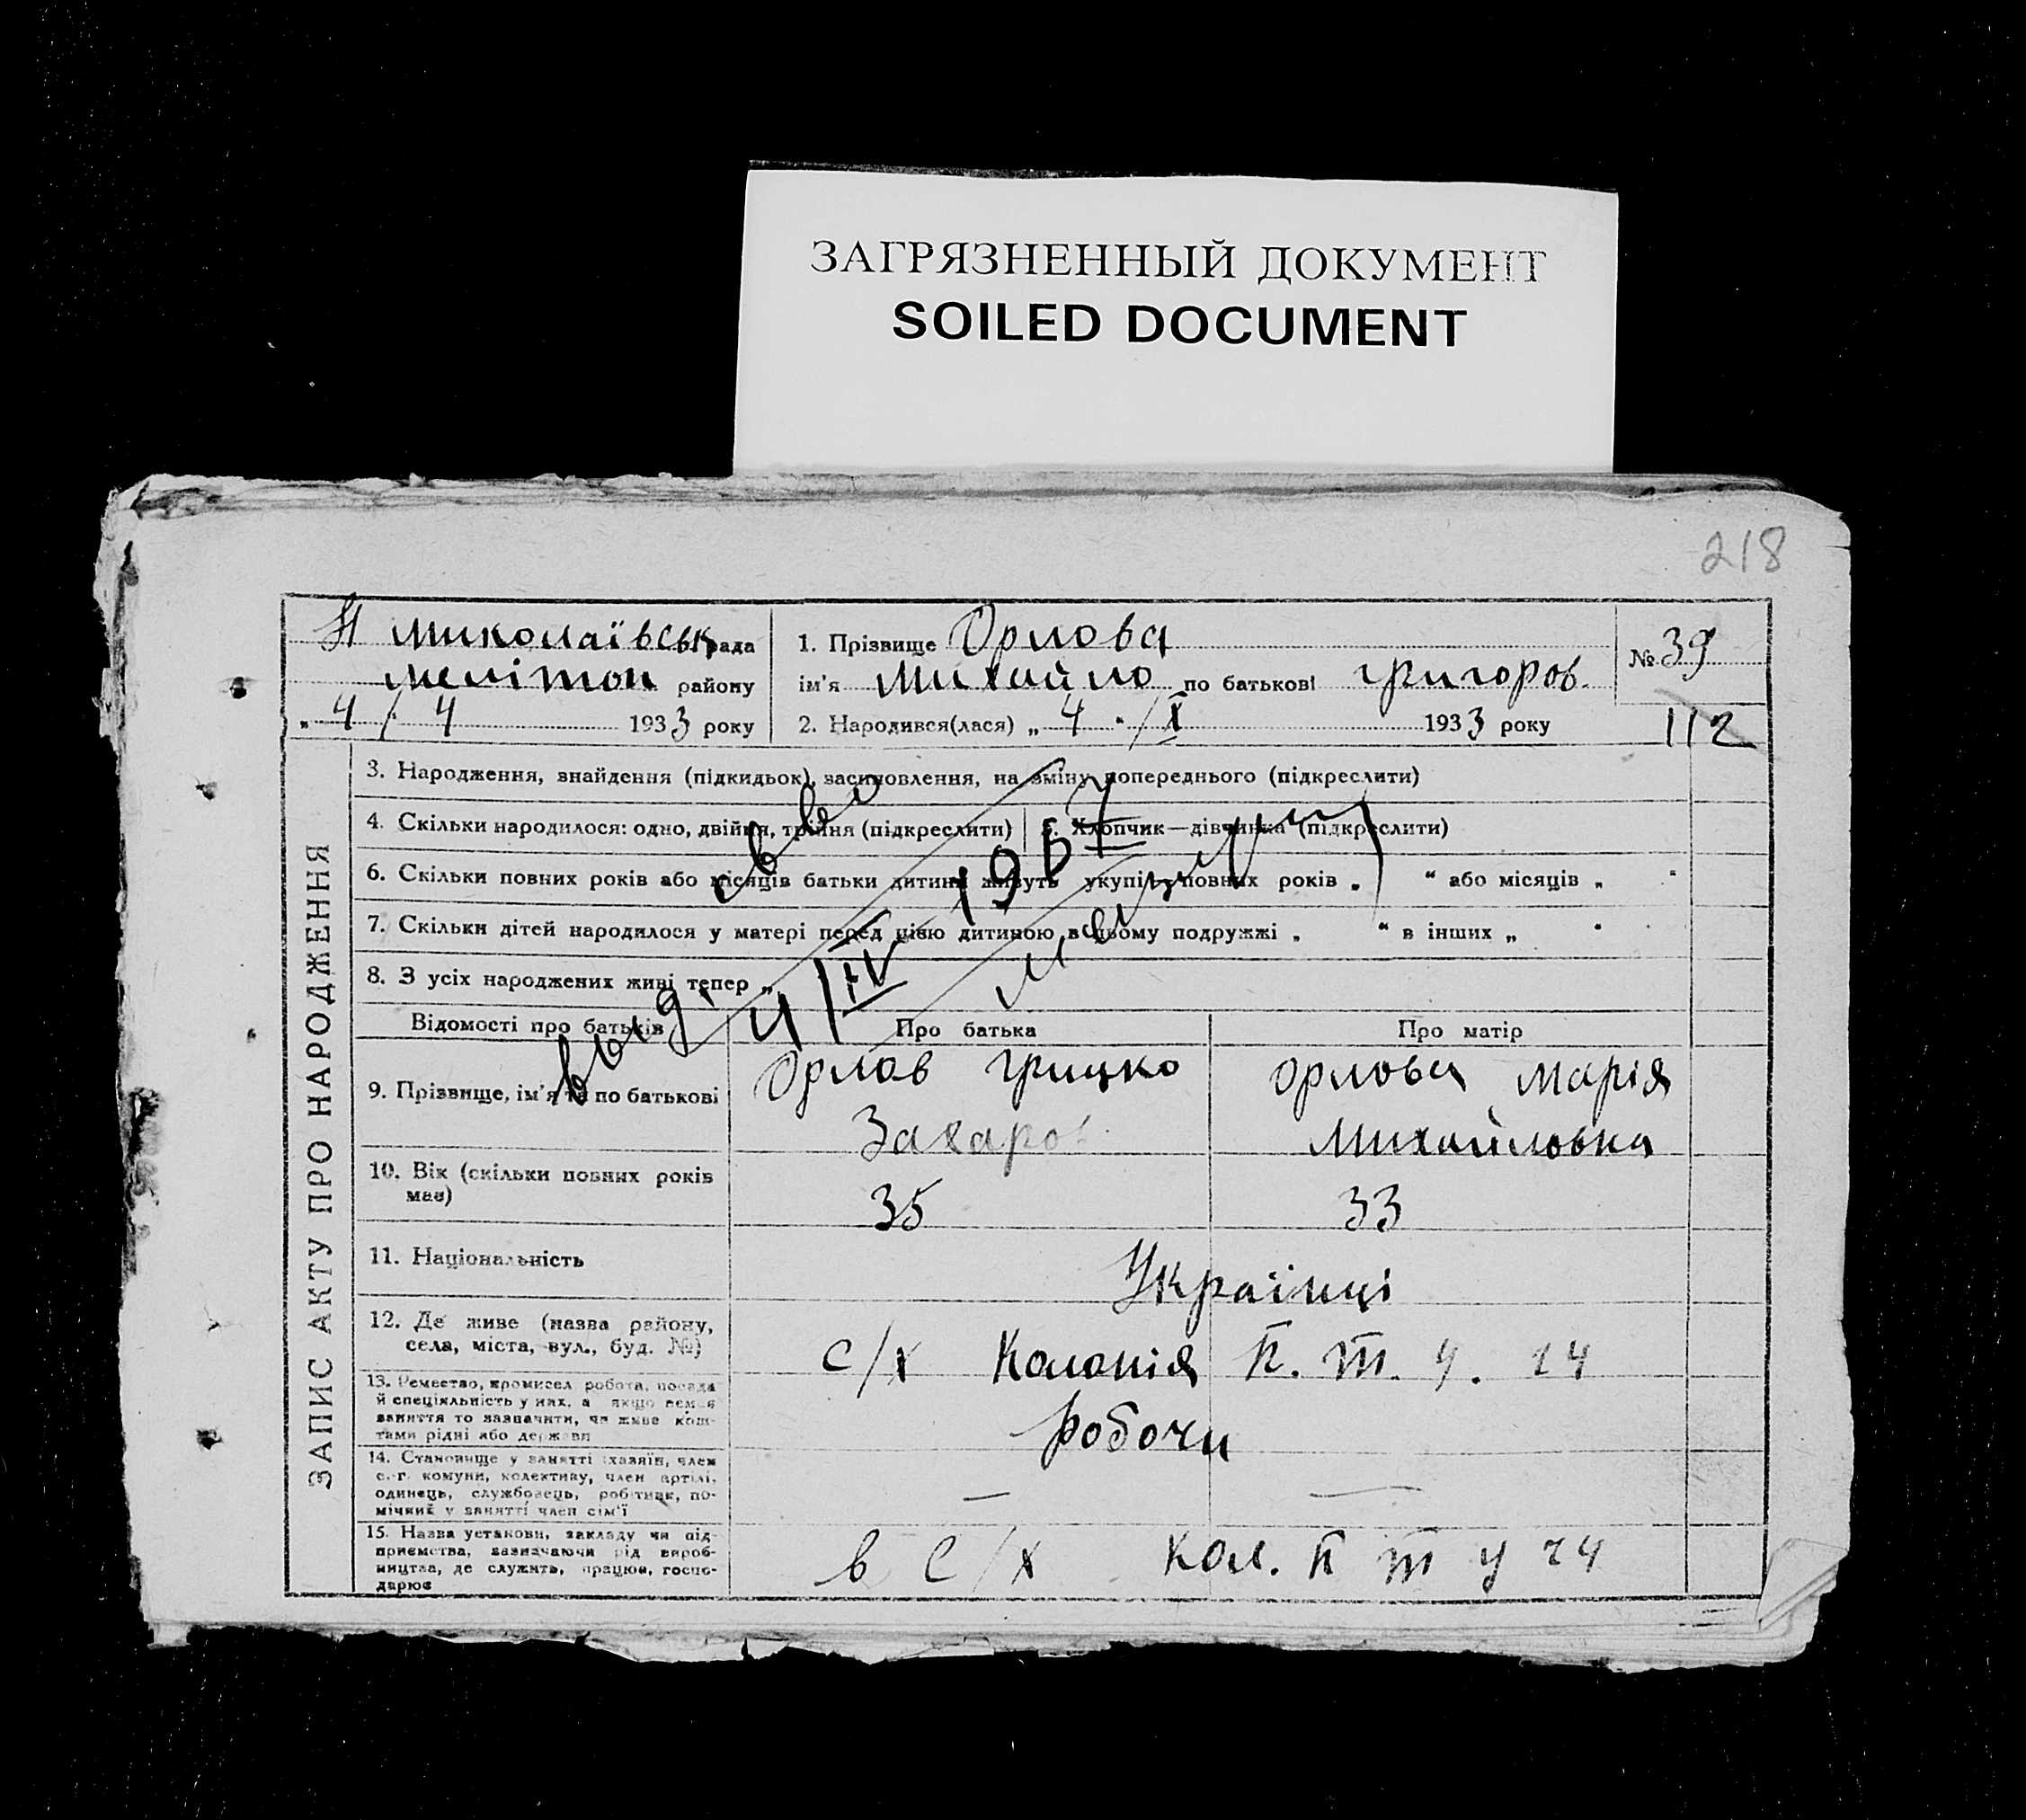 ЗАГРЯЗНЕННЫЙ ДОКУМЕНТ
SOILED DOCUMENT
218
Н Миколаївськ рада
Мелітоп району
„ 4 / 4 1933 року
1. Прізвище Орлова
ім'я Михайло по батькові Григоров.
2. Народився(лася) „ 4 " / X 1933 року
№ 39
112
ЗАПИС АКТУ ПРО НАРОДЖЕННЯ
3. Народження, знайдення (підкидьок), засиновлення, на зміну попереднього (підкреслити)
4. Скільки народилося: одно, двійня, трійня (підкреслити)
5. Хлопчик—дівчинка (підкреслити)
6. Скільки повних років або місяців батьки дитини живуть укупі: повних років „ “ або місяців „ "
7. Скільки дітей народилося у матері перед цією дитиною в цьому подружжі „ “ в інших „ "
8. З усіх народжених живі тепер „
выд.
4/IV 1957
Відомості про батьків
Про батька
Про матір
9. Прізвище, ім'я та по батькові
Орлов Грицко
Захаров
Орлова Марія
Михайловна
10. Вік (скільки повних років
має)
35
33
11. Національність
Українці
12. Де живе (назва району,
села, міста, вул., буд. №)
с/х Колонія П. т. у. 24
13. Ремество, промисел робота, посада
й спеціяльність у них, а якщо немає
заняття то зазначити, чи живе кош-
тами рідні або держави
робочи
14. Становище у занятті (хазяїн, член
с.-г. комуни, колективу, член артілі,
одинець, службовець, робітник, по-
мічний у занятті член сім'ї
— —
15. Назва установи, закладу чи під-
приємства, зазначаючи рід вироб-
ництва, де служить, працює, госпо-
дарює
в С/х Кол. П т у 24